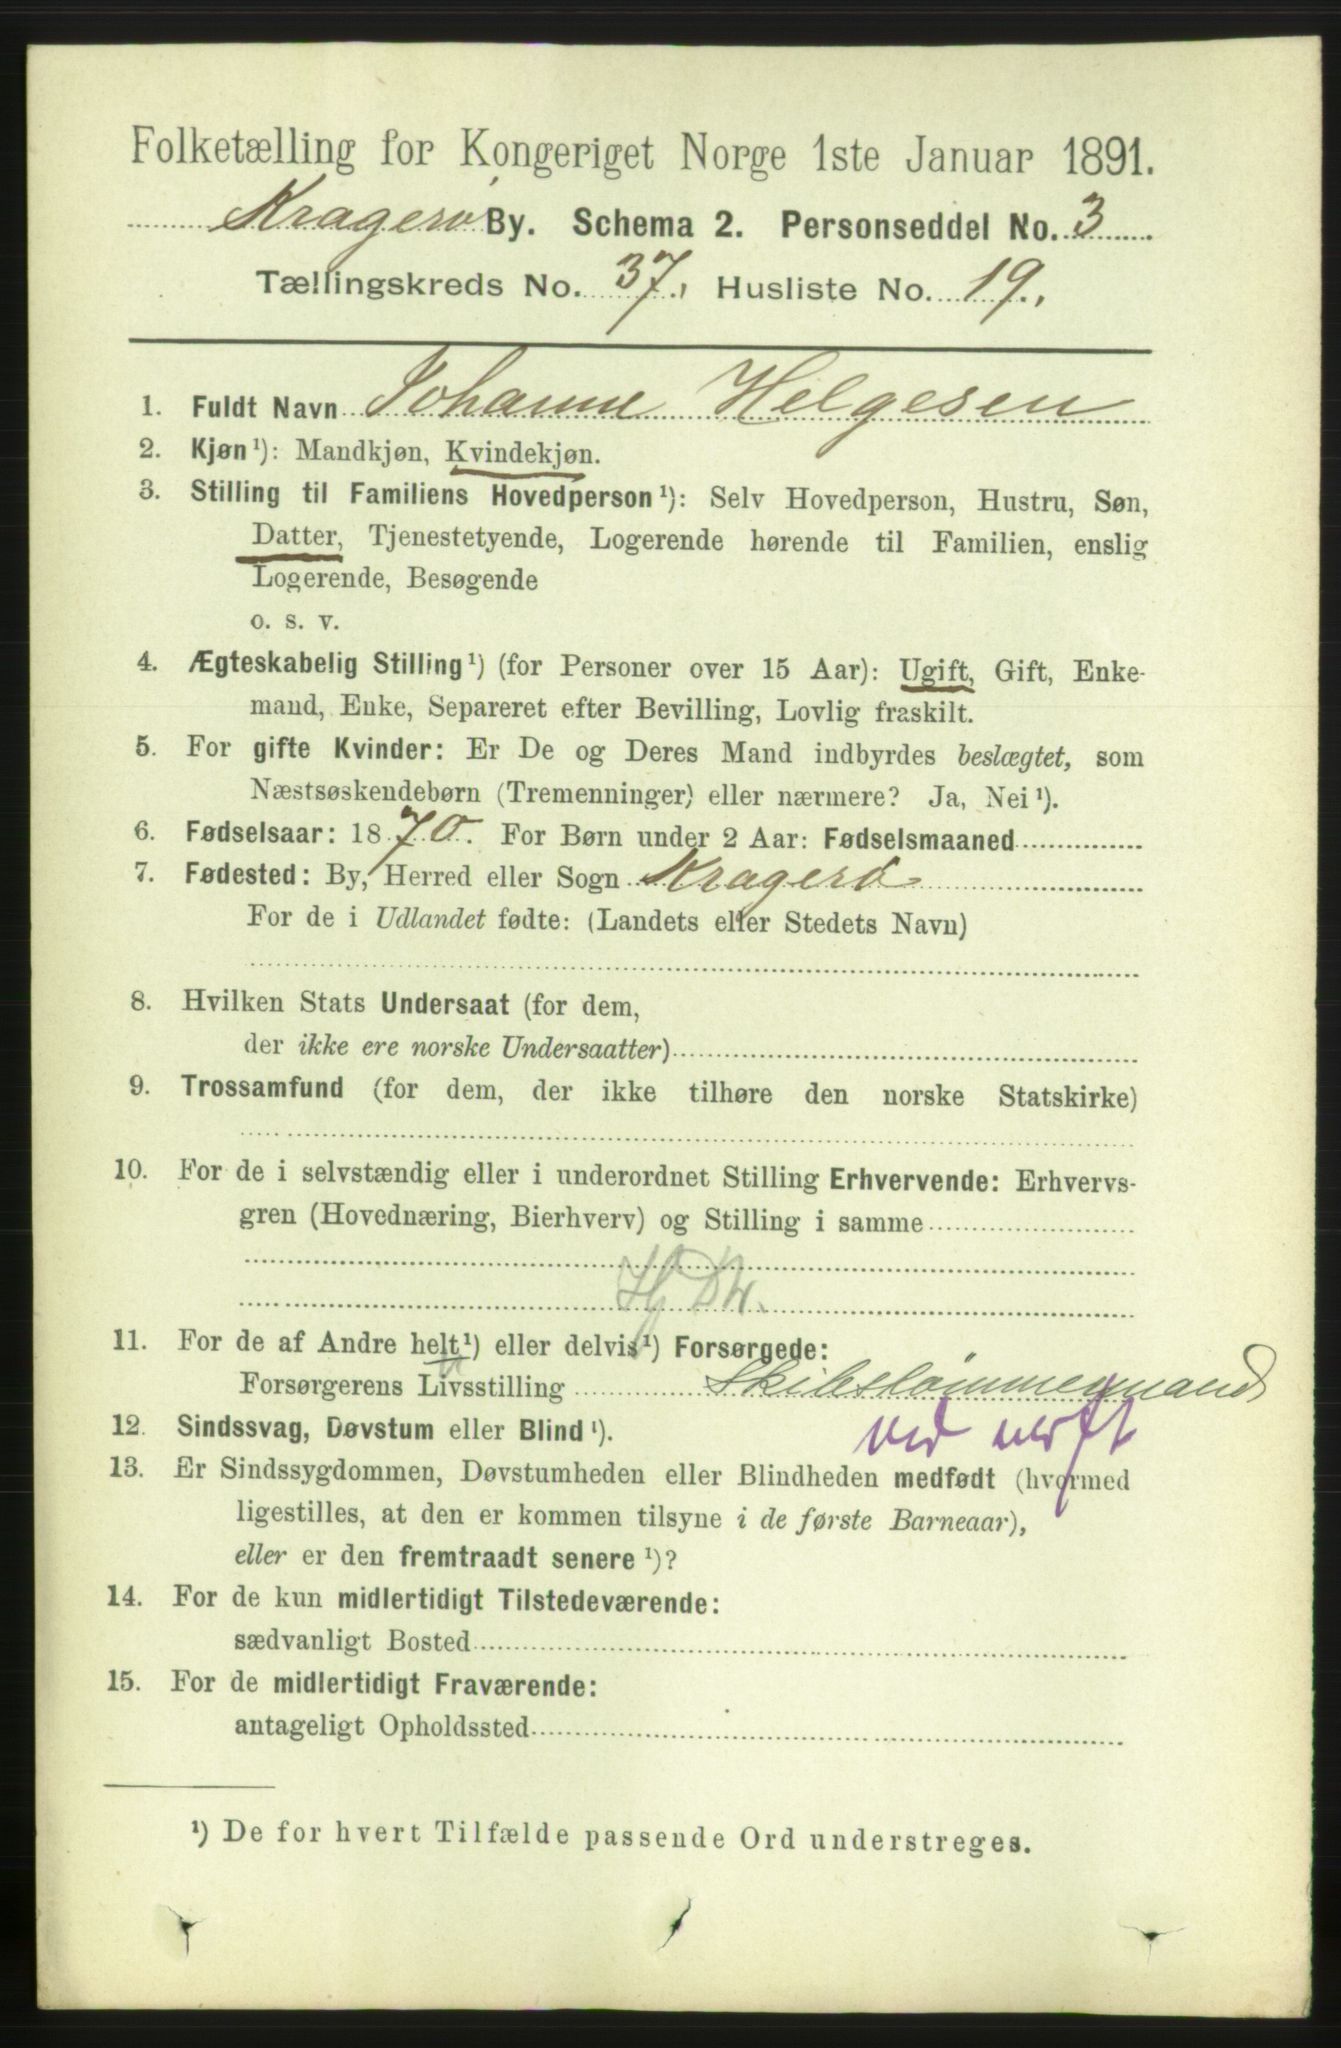 Folketælling for Kongeriget Norge 1ste Januar 1891.
Kragerø By. Schema 2. Personseddel No. 3
Tællingskreds No. 37. Husliste No. 19.
1. Fuldt Navn Johanne Helgesen
2. Kjøn¹): Mandkjøn, Kvindekjøn.
3. Stilling til Familiens Hovedperson¹): Selv Hovedperson, Hustru, Søn,
Datter, Tjenestetyende, Logerende hørende til Familien, enslig
Logerende, Besøgende
o. s. v.
4. Ægteskabelig Stilling¹) (for Personer over 15 Aar): Ugift, Gift, Enke-
mand, Enke, Separeret efter Bevilling, Lovlig fraskilt.
5. For gifte Kvinder: Er De og Deres Mand indbyrdes beslægtet, som
Næstsøskendebørn (Tremenninger) eller nærmere? Ja, Nei¹).
6. Fødselsaar: 1870. For Børn under 2 Aar: Fødselsmaaned
7. Fødested: By, Herred eller Sogn Kragerø
For de i Udlandet fødte: (Landets eller Stedets Navn)
8. Hvilken Stats Undersaat (for dem,
der ikke ere norske Undersaatter)
9. Trossamfund (for dem, der ikke tilhøre den norske Statskirke)
10. For de i selvstændig eller i underordnet Stilling Erhvervende: Erhvervs-
gren (Hovednæring, Bierhverv) og Stilling i samme
11. For de af Andre helt¹) eller delvis¹) Forsørgede:
Forsørgerens Livsstilling Skibstømmermand
12. Sindssvag, Døvstum eller Blind¹).
13. Er Sindssygdommen, Døvstumheden eller Blindheden medfødt (hvormed
ligestilles, at den er kommen tilsyne i de første Barneaar),
eller er den fremtraadt senere¹)?
14. For de kun midlertidigt Tilstedeværende:
sædvanligt Bosted
15. For de midlertidigt Fraværende:
antageligt Opholdssted
¹) De for hvert Tilfælde passende Ord understreges.